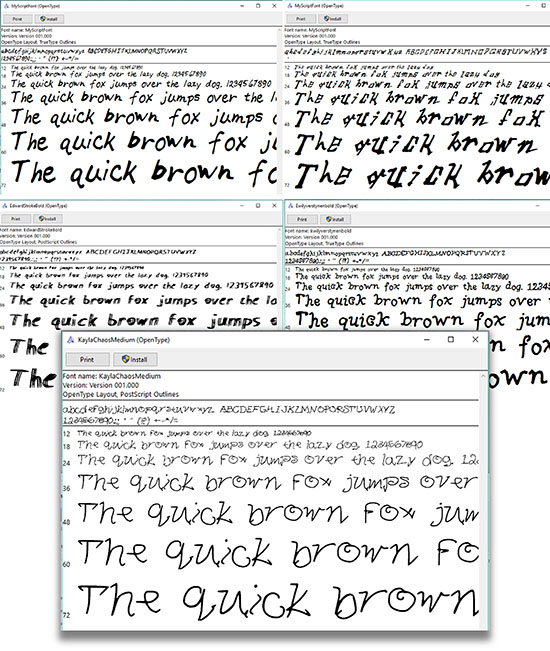 MyScriptFont (OpenType)
Print Install
Font name: MyScriptFont
Version: Version 001.000
OpenType Layout, TrueType Outlines
abcdefghijklmnopqrstuvwxyz ABCDEFGHIJKLMNOPQRSTUVWXYZ
1234567890.:,; ' " (!?) +-*/=
12 The quick brown fox jumps over the lazy dog. 1234567890
18 The quick brown fox jumps over the lazy dog. 1234567890
24 The quick brown fox jumps over the lazy dog. 1234567890
36 The quick brown fox jumps over the l
48 The quick brown fox jumps
60 The quick brown fox ju
72 The quick brown fo
MyScriptFont (OpenType)
Print Install
Font name: MyScriptFont
Version: Version 001.000
OpenType Layout, TrueType Outlines
12 The quick brown fox jumps over the lazy dog
18 The quick brown fox jumps over the lazy dog
24 The quick brown fox jumps over the lazy d
36 The quick brown fox jumps
48 The quick brown fox
60 The quick brown
72 The quick brow
EdwardStrokeBold (OpenType)
Print Install
Font name: EdwardStrokeBold
Version: Version 001.000
OpenType Layout, PostScript Outlines
abcdefghijklmnopqrstuvwxyz ABCDEFGHIJKLMNOPQRSTUVWXYZ
1234567890.:,; ' " (!?) +-*/=
12 The quick brown fox jumps over the lazy dog. 1234567890
18 The quick brown fox jumps over the lazy dog. 1234567890
24 The quick brown fox jumps over the lazy dog. 1234567890
36 The quick brown fox jumps over the la
The quick brown fox jumps
The
The
Ewilyverstynenbold (OpenType)
Print Install
Font name: Ewilyverstynenbold
Version: Version 001.000
OpenType Layout, TrueType Outlines
abcdefghijklmnopqrstuvwxyz ABCDEFGHIJKLMNOPQRSTUVWXYZ
1234567890.:,; ' " (!?) +-*/=
12 The quick brown fox jumps over the lazy dog. 1234567890
18 The quick brown fox jumps over the lazy dog. 1234567890
24 The quick brown fox jumps over the lazy dog. 12
36 The quick brown fox jumps over
The quick brown fox jum
n fo
own
KaylaChaosMedium (OpenType)
Print Install
Font name: KaylaChaosMedium
Version: Version 001.000
OpenType Layout, PostScript Outlines
abcdefghijklmnopqrstuvwxyz ABCDEFGHIJKLMNOPQRSTUVWXYZ
1234567890.:,; ' " (!?) +-*/=
12 The quick brown fox jumps over the lazy dog. 1234567890
18 The quick brown fox jumps over the lazy dog. 1234567890
24 The quick brown fox jumps over the lazy dog. 12
36 The quick brown fox jumps over
48 The quick brown fox jum
60 The quick brown fo
72 The quick brown